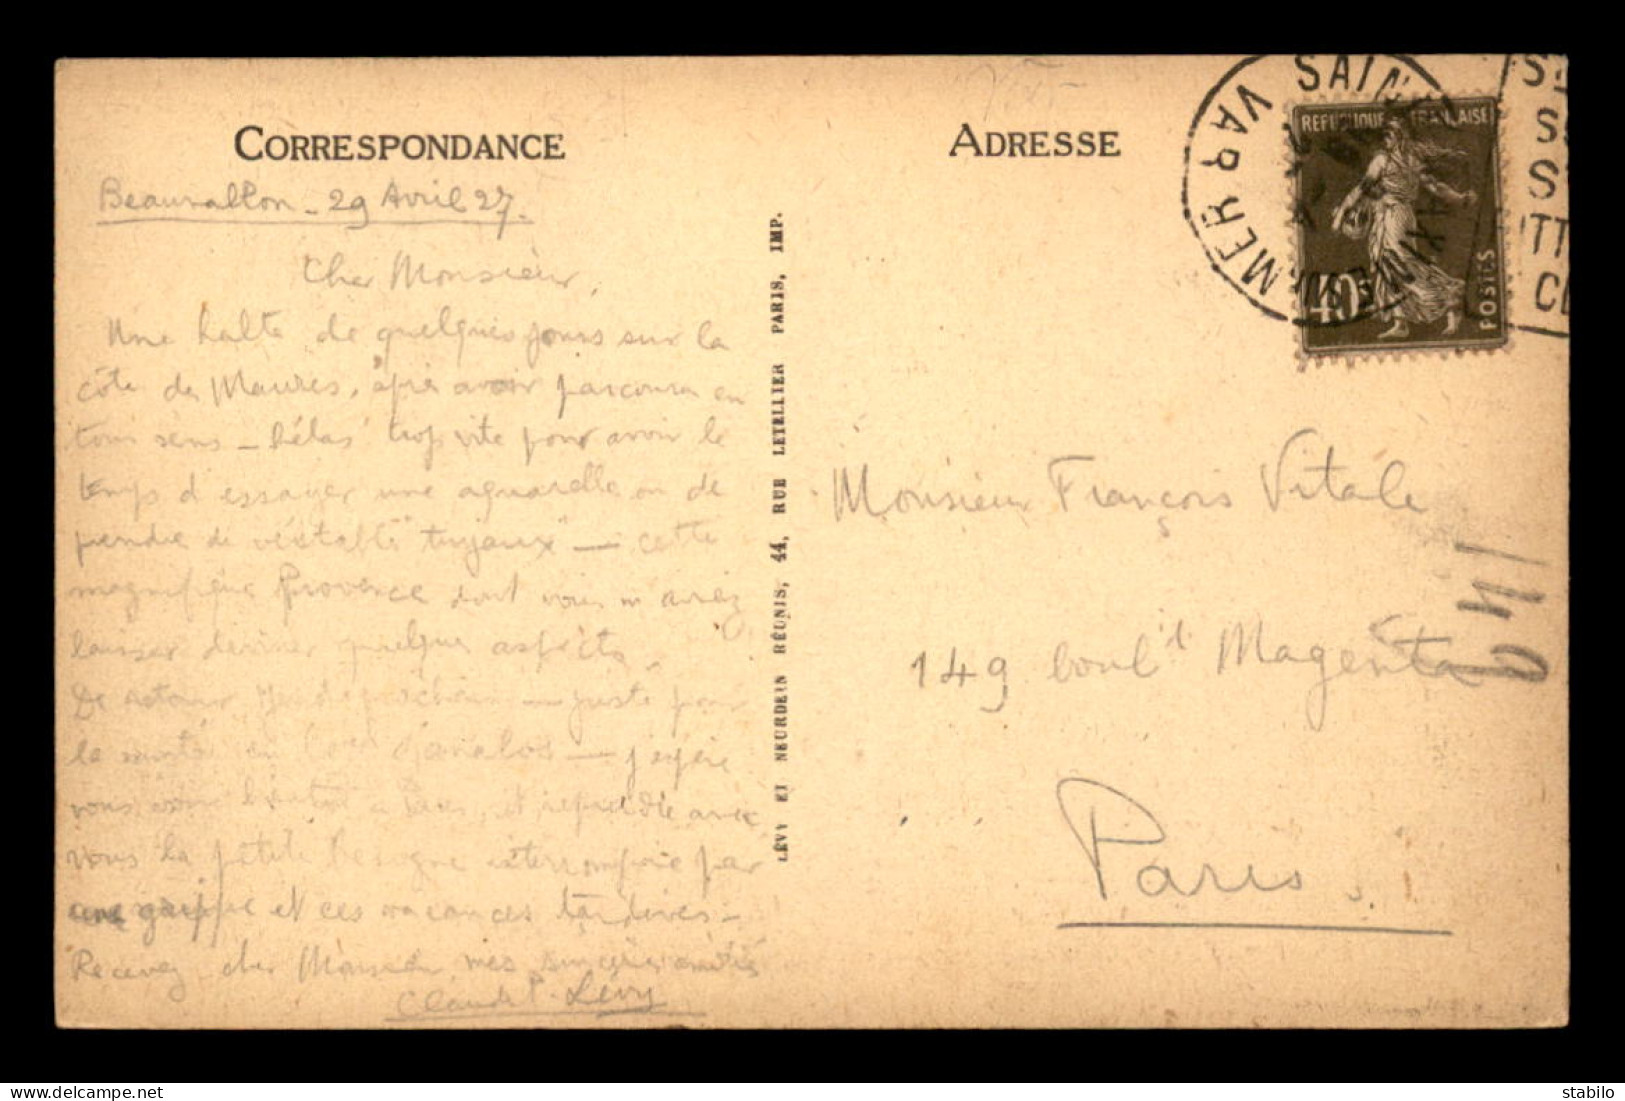 CORRESPONDANCE
Beauvallon - 29 Avril 27.
Cher Monsieur,
Une halte de quelques jours sur la
côte des Maures, après avoir parcouru en
tous sens - hélas trop vite pour avoir le
temps d'essayer une aquarelle ou de
peindre de véritables - cette
magnifique Provence dont vous m'aviez
laissé deviner quelques aspects.
De retour prochain - juste pour
la - j'espère
vous voir bientôt à Paris, et reprendre avec
vous la petite besogne interrompue par
une grippe et ces vacances tardives -
Recevez, cher Monsieur, mes sincères amitiés
Claude Lévy
LÉVY ET NEURDEIN RÉUNIS, 44, RUE LETELLIER PARIS, IMP.
ADRESSE
SAINTE MAXIME SUR MER VAR
REPUBLIQUE FRANÇAISE
40c
POSTES
Monsieur François Vitale
149 boul.d Magenta
Paris
641
stabilo